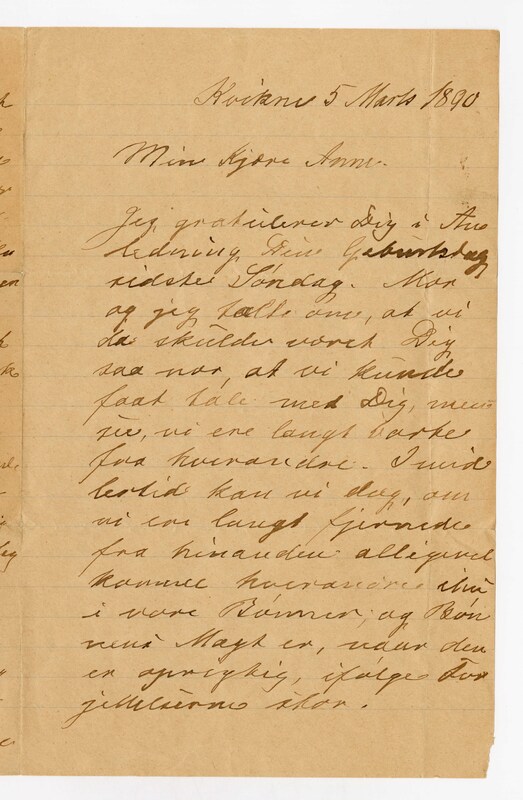 Kvikne 5 Marts 1890
Min Kjære Anne.
Jeg gratulerer Dig i An
ledning Din Geburtsdag
sidste Søndag. Mor
og jeg talte om, at vi
da skulde været Dig
saa nær, at vi kunde
faat tale med Dig, men
vi ere langt borte
fra hverandre. Imid
lertid kan vi dog, om
vi ere langt fjernede
fra hinanden alligevel
komme hverandre ihu
i vore Bønner, og Bøn
nens Magt er, naar den
er oprigtig, ifølge For
jettelserne stor.